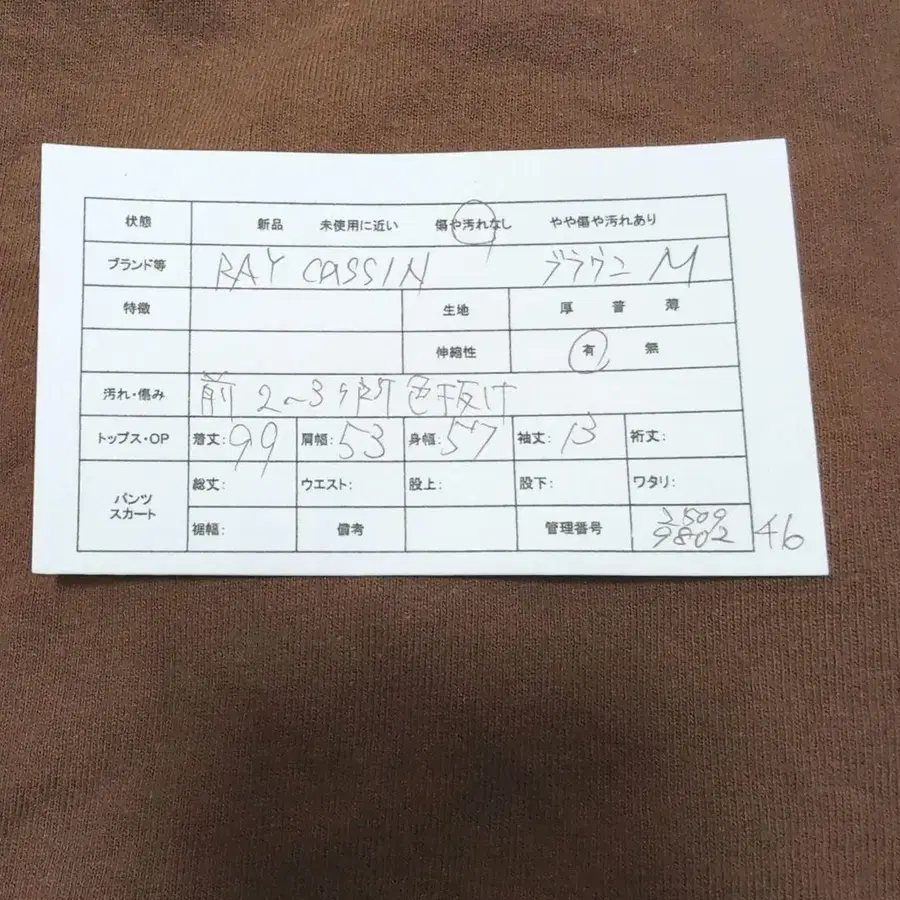 状態 新品 未使用に近い 傷や汚れなし やや傷や汚れあり
ブランド等 RAY CASSIN ブラウン M
特徴 生地 厚 普 薄
伸縮性 有 無
汚れ・傷み 前2~3ヶ所色抜け
トップス・OP 着丈:99 肩幅:53 身幅:57 袖丈:13 裄丈:
パンツ スカート 総丈: ウエスト: 股上: 股下: ワタリ:
裾幅: 備考 管理番号 2509 9802 46